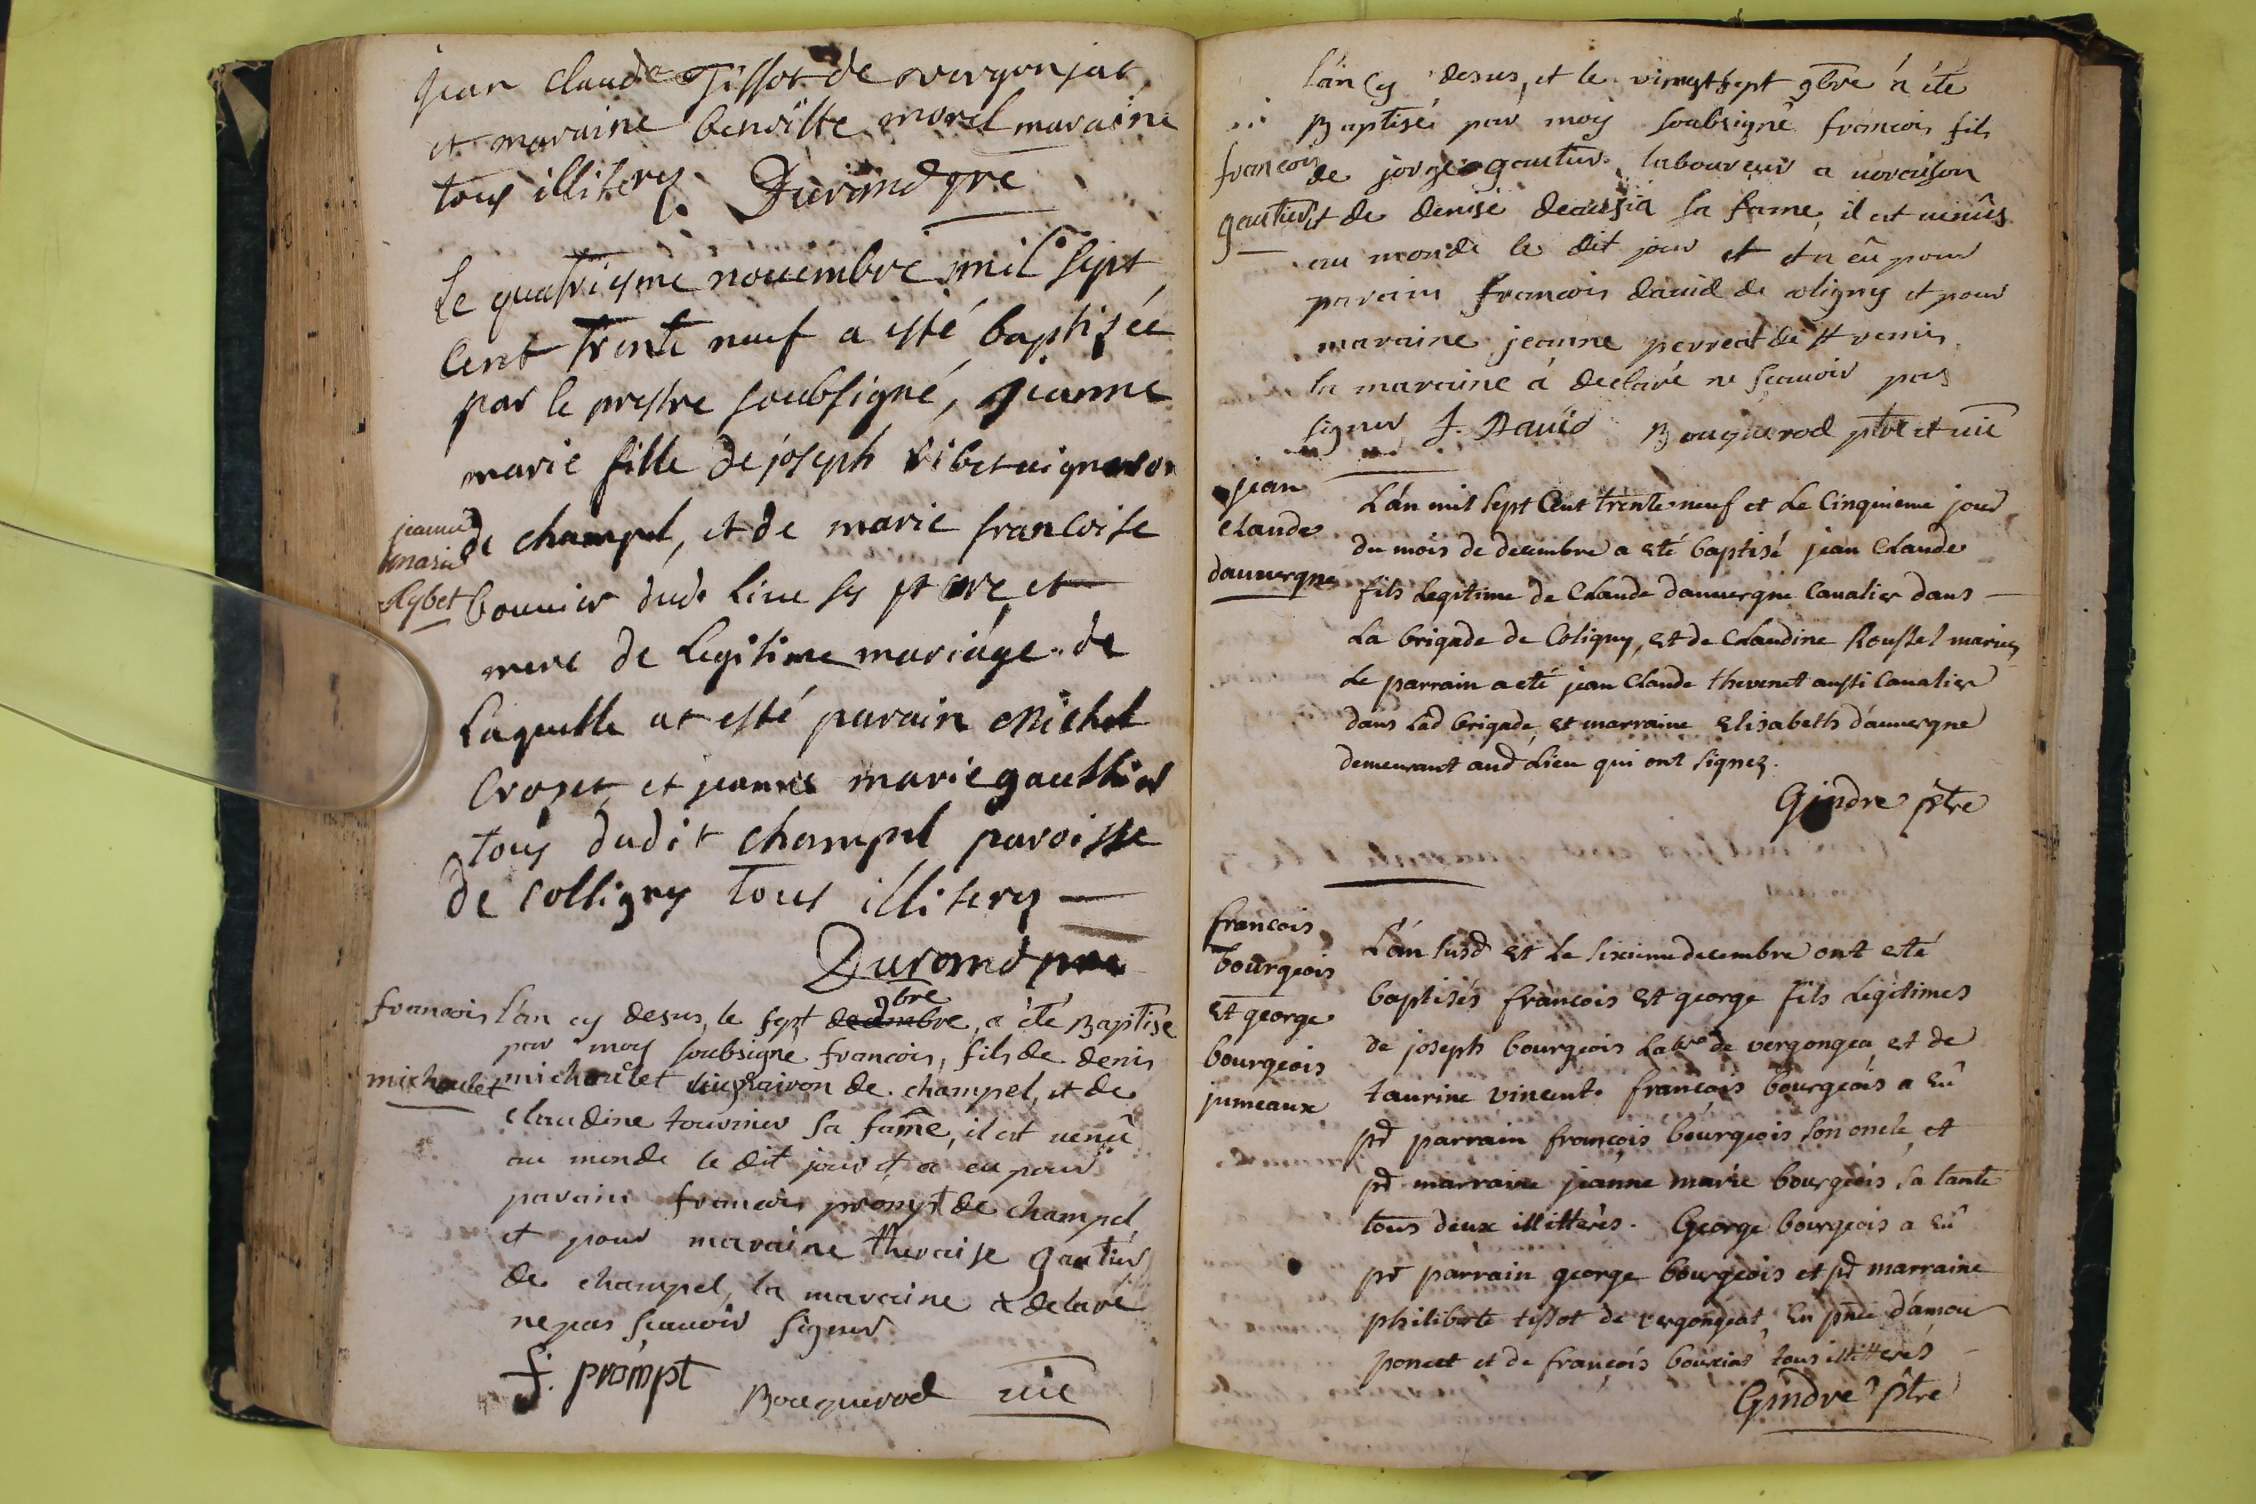 jean claude Tissot de vergonjat
et maraine benoitte morel maraine
tous illiterez. Durand pre
Le quatriesme nouembre mil sept
Cent trente neuf a esté baptisée
par le prestre soubsigné, jeanne
marie fille de joseph ribet uigneron
jeanne
marie
Rybet
de champel, et de marie francoise
bouuier dud. lieu ses pere et
mere de Legitime mariage de
Laquelle at esté parain Michel
Crozet et jeanne marie gauthier
tous dudit champel paroisse
de Colligny tous illiterez
Durand pre
francois
michoulet
l'an cy desus, le sept decembre 9bre, a été Baptisé
par moy soubsigné francois, fils de denis
michoulet uigneron de champel, et de
claudine tournier sa fame, il est uenû
au monde le dit jour et a eu pour
parain francois prompt de champel
et pour maraine theraise gautier
de champel, la maraine a declaré
ne pas scauoir signer
f. prompt Bouquerod uic
l'an cy desus, et le vingt sept 9bre a été
Baptisé par moy soubsigné francois fils
francois
gautier
de jorge gautier laboureur a
et de denise sa fame, il est uenûs
au monde le dit jour et et a eû pour
parain francois dauid de coligny et pour
maraine jeanne perreat de st remis
la maraine a declaré ne scauoir pas
signer f. Dauid Bouquerod ptre et uic
jean
claude
dauuergne
L'an mil sept Cent trente neuf et Le Cinquieme jour
du mois de decembre a eté baptisé jean Claude
fils Legitime de Claude dauuergne Caualier dans
La brigade de Coligny, et de Claudine Roussel mariez
Le parrain a eté jean Claude thevenet aussi Caualier
dans Lad brigade, et marraine Elisabeth dauuergne
demeurant aud Lieu qui ont signez.
Gindre ptre
francois
bourgeois
Et george
bourgeois
jumeaux
L'an susd et Le sixieme decembre ont eté
baptisés françois et george fils Légitimes
de joseph bourgeois Labr de vergongea et de
taurine vincent. françois bourgeois a eû
pr parrain françois bourgeois son oncle, et
pr marraine jeanne marie bourgeois, sa tante
tous deux illitterés. George bourgeois a eû
pr parrain george bourgeois et pr marraine
philiberte tissot de vergongeat, En pnce d'amou
poncet et de françois tous illitterés
Gindre ptre